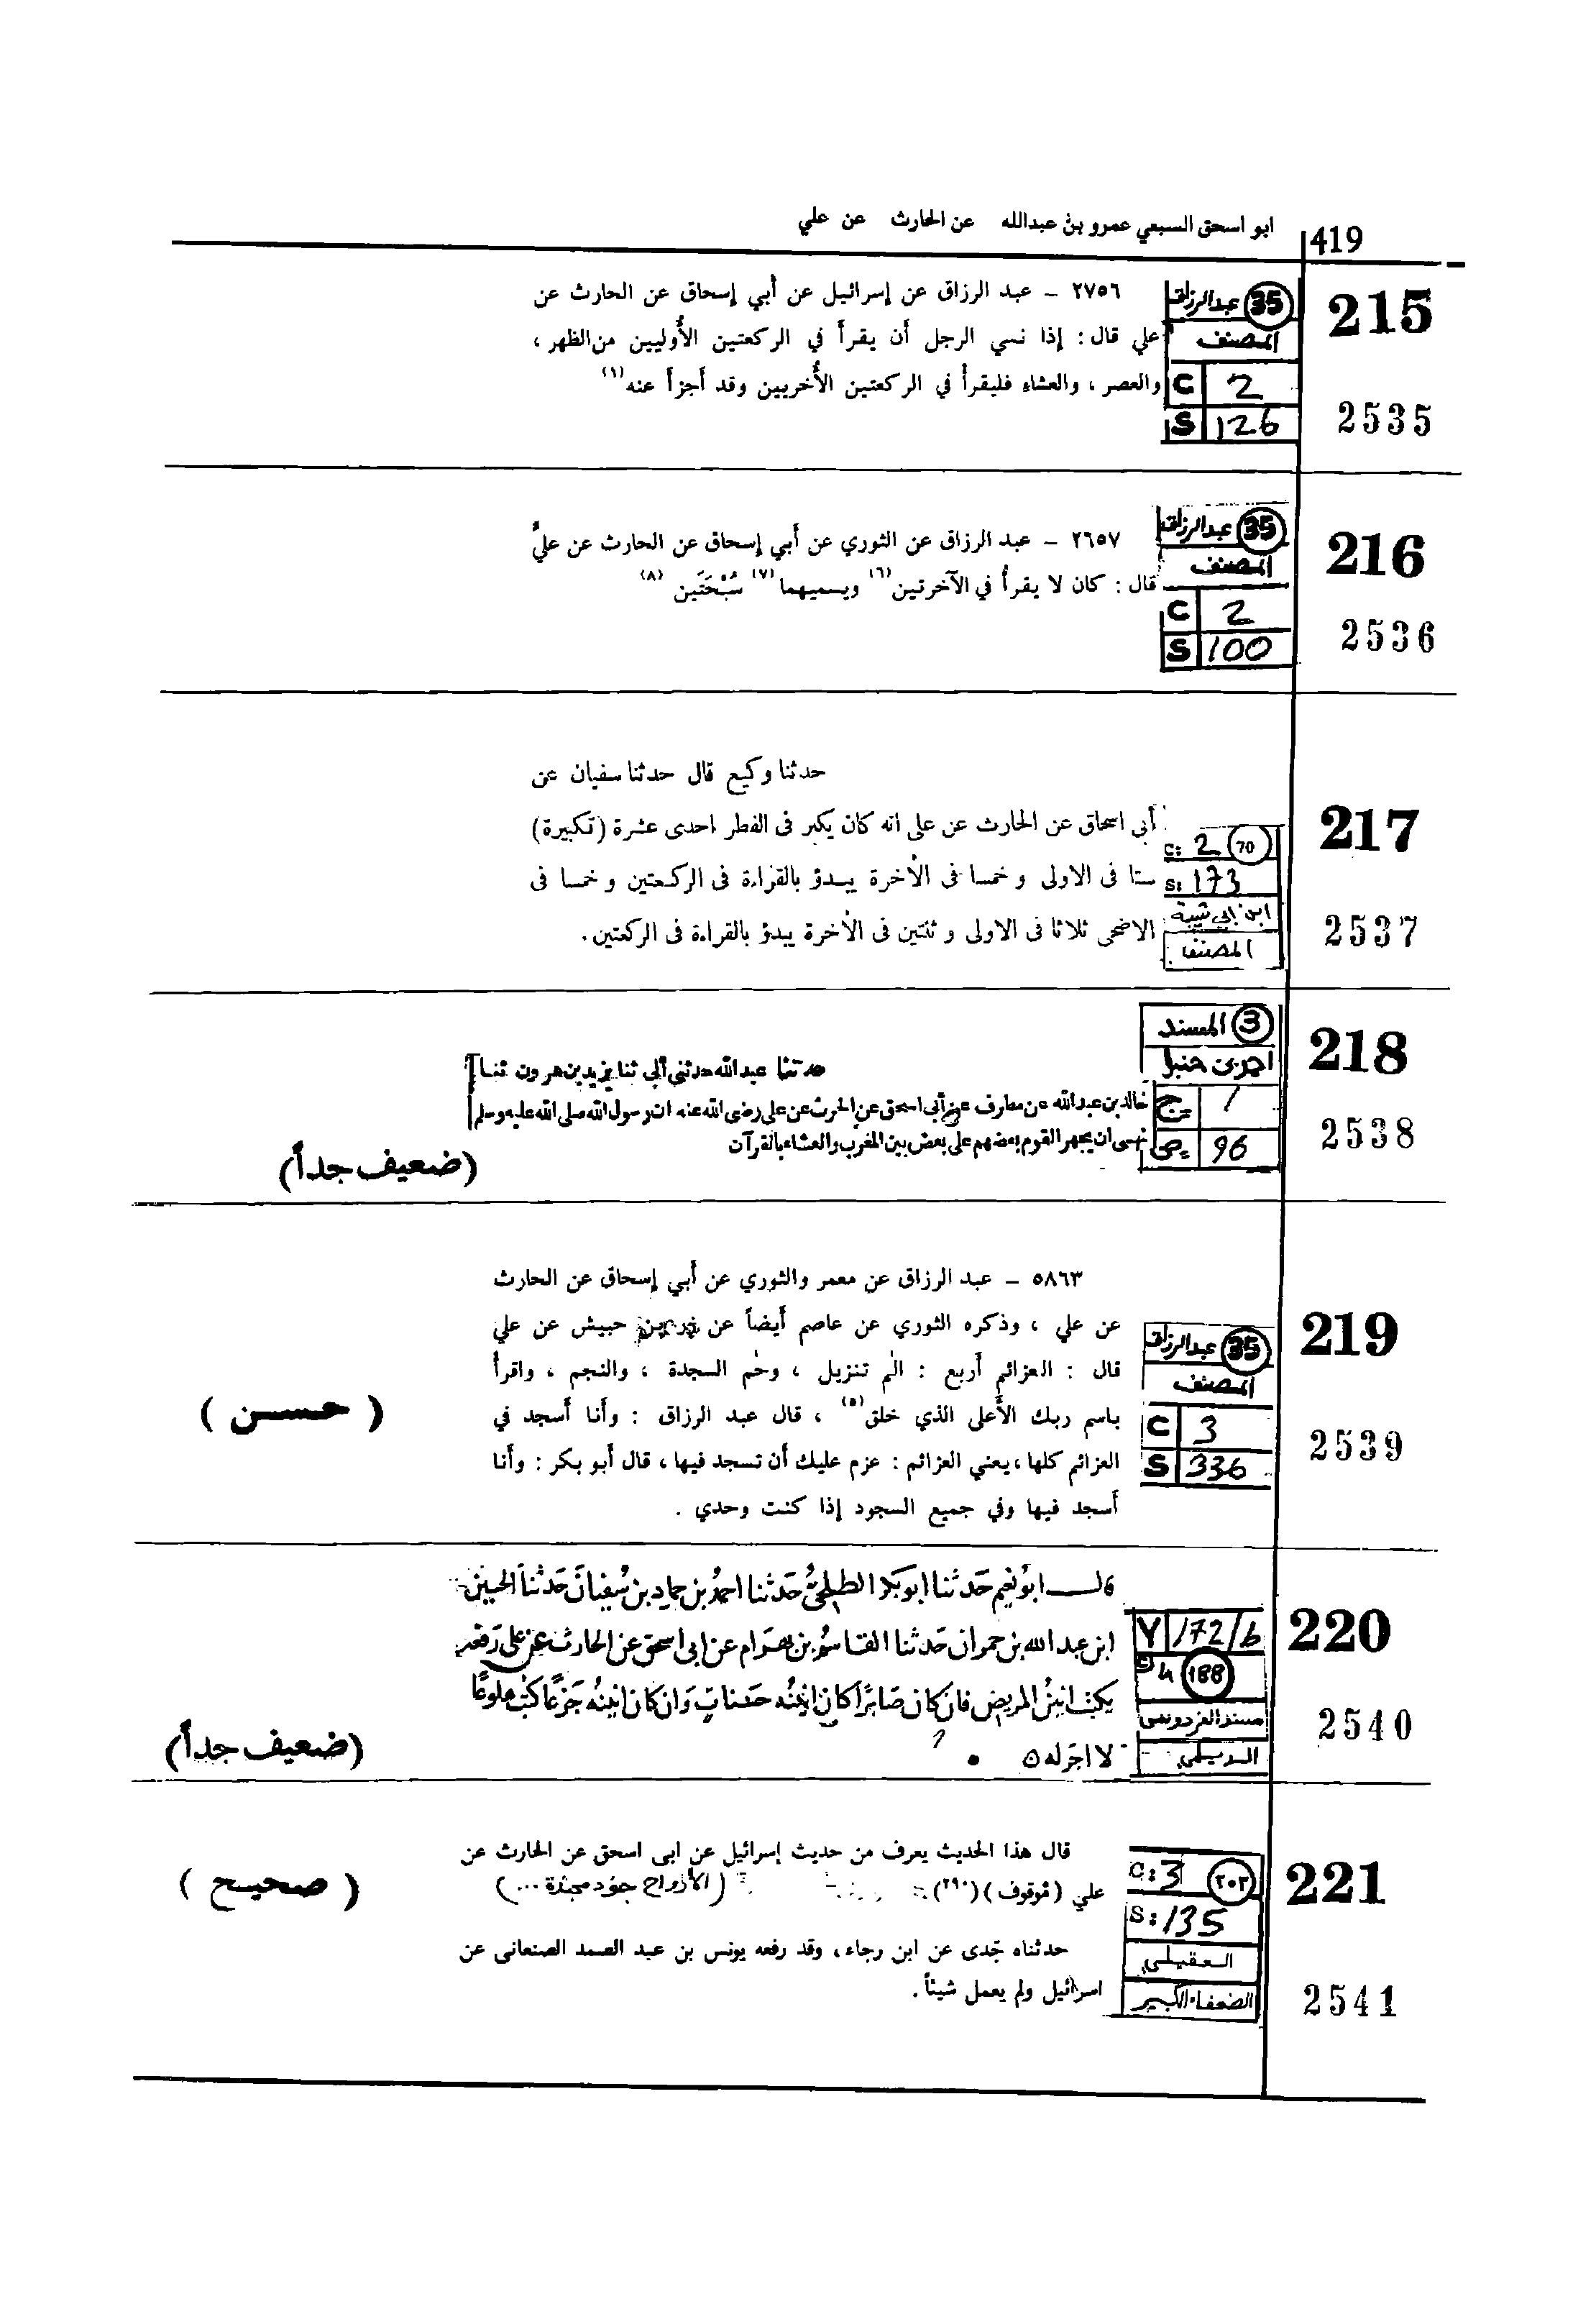 419
ابو اسحق السبعي عمرو بن عبدالله عن الحارث عن علي
215
2535
35 عبدالرزاق
المصنف
C 2
S 126
٢٧٥٦ – عبد الرزاق عن إسرائيل عن أبي إسحاق عن الحارث عن
علي قال : إذا نسي الرجل أن يقرأ في الركعتين الأُوليين من الظهر ،
والعصر ، والعشاء فليقرأْ في الركعتين الأُخريين وقد أجزأ عنه (٦)
216
2536
35 عبدالرزاق
المصنف
C 2
S 100
٢٦٥٧ – عبد الرزاق عن الثوري عن أبي إسحاق عن الحارث عن عليّ
قال : كان لا يقرأُ في الآخرتين (٦) ويسميهما (٧) سُبْحَتَين (٨)
217
2537
C: 2 70
S: 173
ابن ابي شيبة
المصنف
حدثنا وكيع قال حدثنا سفيان عن
أبى اسحاق عن الحارث عن على انه كان يكبر فى الفطر احدى عشرة (تكبيرة)
ستا فى الاولى و خمسا فى الأخرة يبدؤ بالقراءة فى الركعتين و خمسا فى
الاضحى ثلاثا فى الاولى و ثنتين فى الأخرة يبدؤ بالقراءة فى الركعتين.
218
2538
3 المسند
احمد بن حنبل
ج 1
ص 96
حدثنا عبد الله حدثني أبي ثنا يزيد بن هرون ثنا
خالد بن عبد الله عن مطرف عن أبى اسحق عن الحرث عن على رضى الله عنه ان رسول الله صلى الله عليه وسلم
نهى ان يجهر القوم بعضهم على بعض بين المغرب والعشاء بالقرآن
(ضعيف جداً)
219
2539
35 عبدالرزاق
المصنف
C 3
S 336
٥٨٦٣ – عبد الرزاق عن معمر والثوري عن أبي إسحاق عن الحارث
عن علي ، وذكره الثوري عن عاصم أيضاً عن زر بن حبيش عن علي
قال : العزائم أربع : الم تنزيل ، وحم السجدة ، والنجم ، واقرأْ
باسم ربك الأعلى الذي خلق (٥) ، قال عبد الرزاق : وأنا أسجد في
العزائم كلها ، يعني العزائم : عزم عليك أن تسجد فيها ، قال أبو بكر : وأنا
أسجد فيها وفي جميع السجود إذا كنت وحدي .
( حسن )
220
2540
Y 172/b
188
مسند الفردوس
الديلمي
قال ابو نعيم حدثنا ابو بكر الطلحي حدثنا احمد بن حماد بن سفيان حدثنا الحسين
ابن عبد الله بن حمران حدثنا القاسم بن بهرام عن ابى اسحق عن الحارث عن على رفعه
يكتب انين المريض فان كان صابرا كان انينه حسنات وان كان انينه جزعا كتب هلوعا
لا اجر له
(ضعيف جداً)
221
2541
C: 3 ٢٠٢
S: 135
العقيلي
الضعفاء الكبير
قال هذا الحديث يعرف من حديث إسرائيل عن ابى اسحق عن الحارث عن
علي ( موقوف ) (٢٩٠) (الأزواح جنود مجندة ...)
حدثناه جَدى عن ابن رجاء، وقد رفعه يونس بن عبد الصمد الصنعانى عن
اسرائيل ولم يعمل شيئاً .
( صحيح )